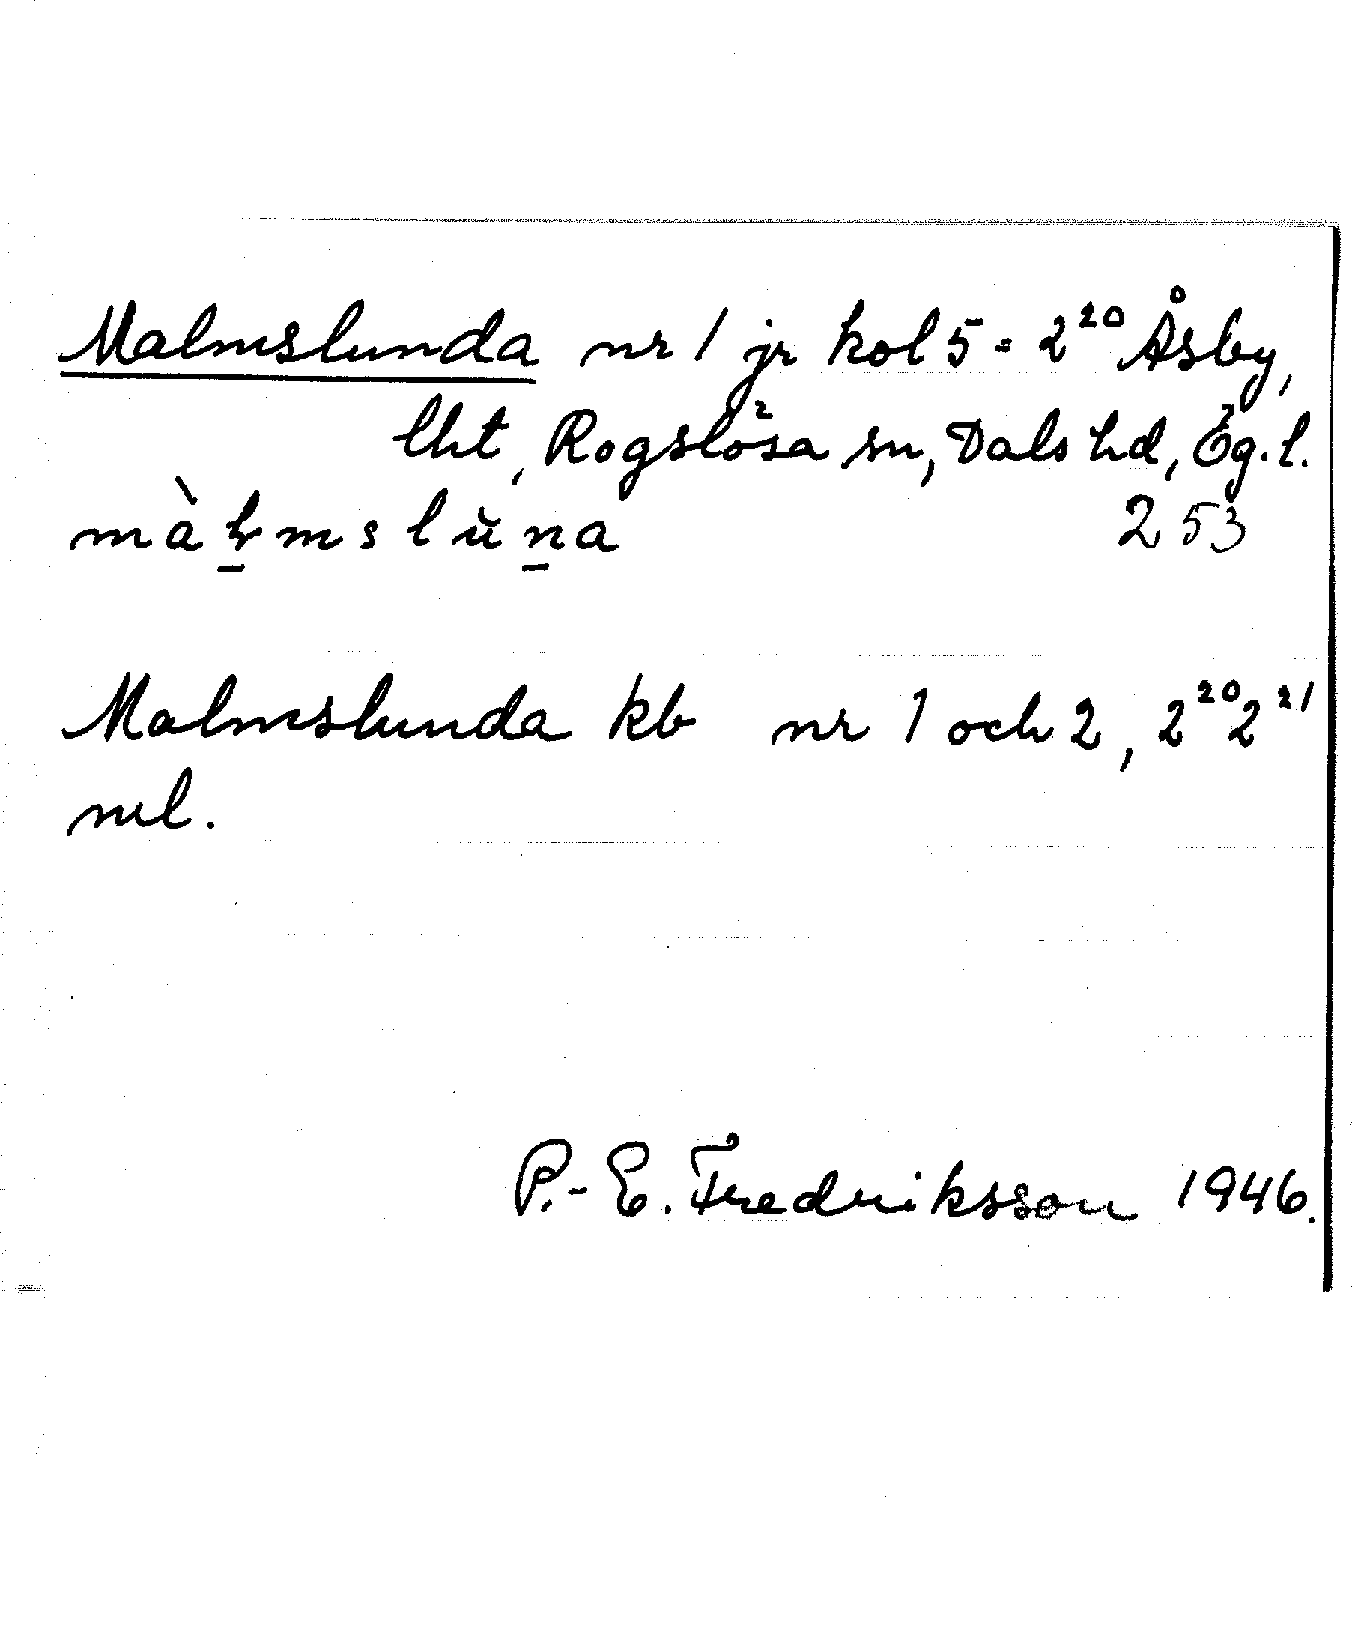 Malmslunda nr 1 jr kol 5 = 2²⁰ Åsby,
lht, Rogslösa sn, Dals hd, Ög. l.
màl̠mslŭn̠a 253
Malmslunda kb nr 1 och 2, 2²⁰ 2²¹
ml.
P.-E. Fredriksson 1946.